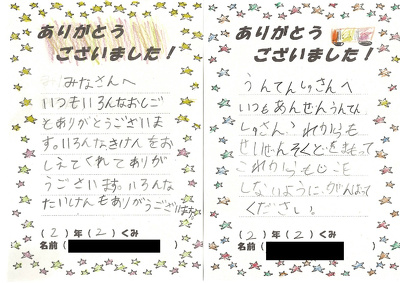 ありがとう
ございました!
みなさんへ
いつもいろんなおしご
とありがとうございま
す。いろんなきけんをお
しえてくれてありが
うございます。いろんな
たいけんもありがうございました
(2)年(2)くみ
名前( )
ありがとう
ございました!
うんてんしゅさんへ
いつもあんぜんうんてん
しゅさん、これからも
せいげんそくどをまもって
これからもじこを
しないように、がんばって
ください。
(2)年(2)くみ
名前( )